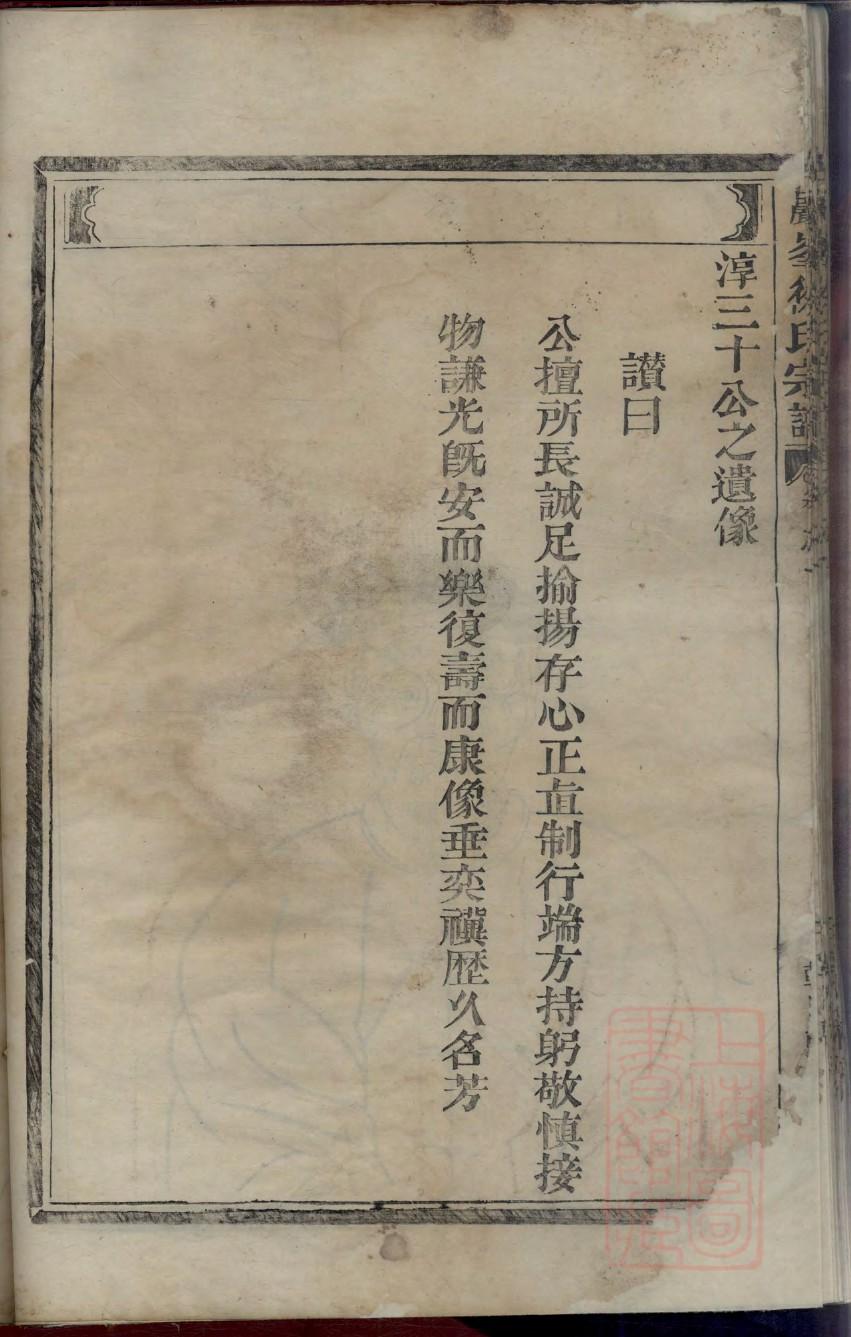 淳三十公之遺像
讃曰
公擅所長誠足揄揚存心正直制行端方持躬敬慎接
物謙光旣安而樂復壽而康像垂奕禩歴久名芳
徐氏宗譜
上海圖書館藏